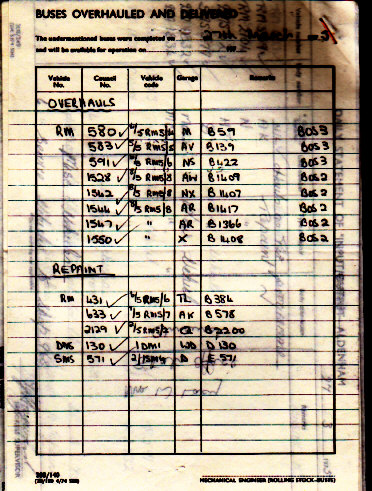 BUSES OVERHAULED AND DELIVERED
The undermentioned buses were completed on 27th March
and will be available for operation on
Vehicle No. Council No. Vehicle code Garage Remarks
OVERHAULS
RM 580 ✓ 4/5RM5/4 M B59 BOS3
583 ✓ 5/5RM5/5 AV B139 BOS3
591 ✓ 6/5RM5/6 NS B422 BOS3
1528 ✓ 8/5RM5/8 AW B1409 BOS2
1542 ✓ 8/5RM5/8 NX B1407 BOS2
1544 ✓ 8/5RM5/8 AR B1417 BOS2
1547 ✓ " AR B1366 BOS2
1550 ✓ " X B1408 BOS2
REPAINT
RM 431 ✓ 6/5RM5/6 TL B384
633 ✓ 7/5RM5/7 AK B578
2129 ✓ B2200
DMS 130 ✓ 1DM1 WD D130
SMS 571 ✓ D E571
MECHANICAL ENGINEER (ROLLING STOCK—BUSES)